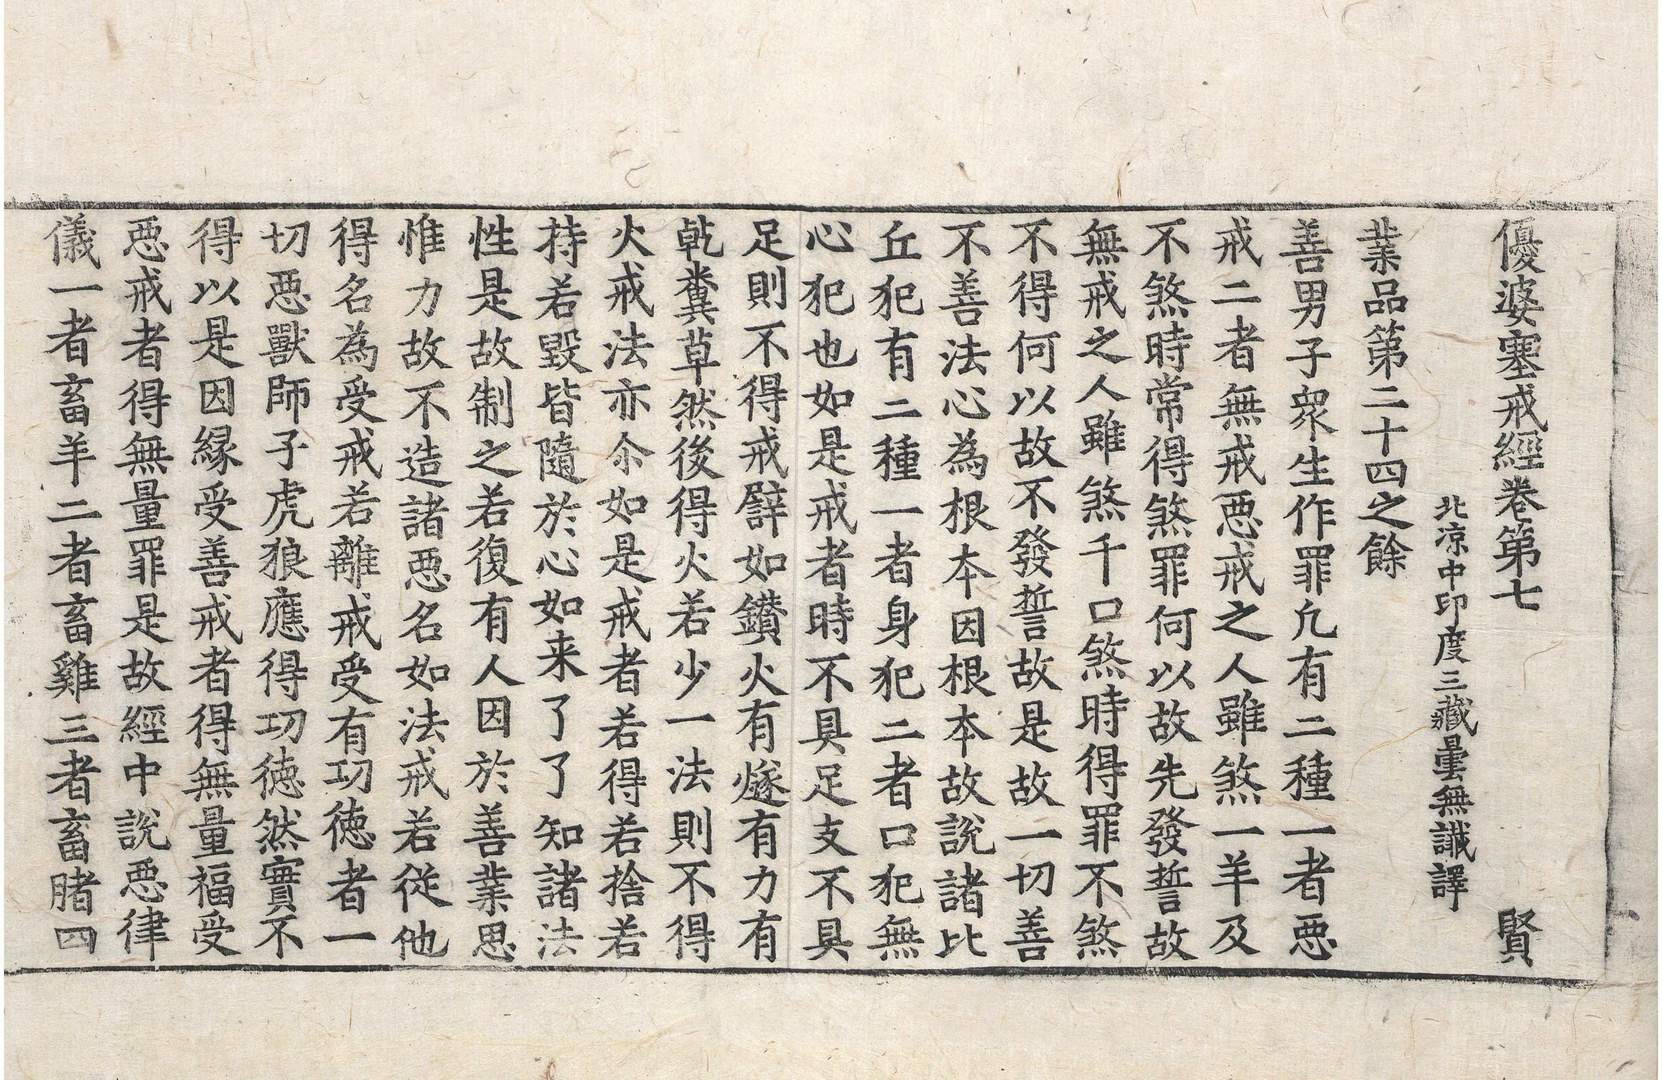 優婆塞戒經卷第七　賢
北涼中印度三藏曇無讖譯
業品第二十四之餘
善男子衆生作罪凢有二種一者惡
戒二者無戒惡戒之人雖煞一羊及
不煞時常得煞罪何以故先發誓故
無戒之人雖煞千口煞時得罪不煞
不得何以故不發誓故是故一切善
不善法心為根本因根本故說諸比
丘犯有二種一者身犯二者口犯無
心犯也如是戒者時不具足支不具
足則不得戒辟如鑽火有燧有力有
乹糞草然後得火若少一法則不得
火戒法亦尒如是戒者若得若捨若
持若毀皆隨於心如来了了知諸法
性是故制之若復有人因於善業思
惟力故不造諸惡名如法戒若従他
得名為受戒若離戒受有功徳者一
切惡獸師子虎狼應得功徳然實不
得以是因縁受善戒者得無量福受
惡戒者得無量罪是故經中說惡律
儀一者畜羊二者畜雞三者畜䐗四